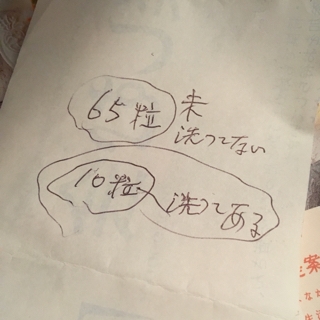 65粒 未
洗ってない
10粒 洗ってある